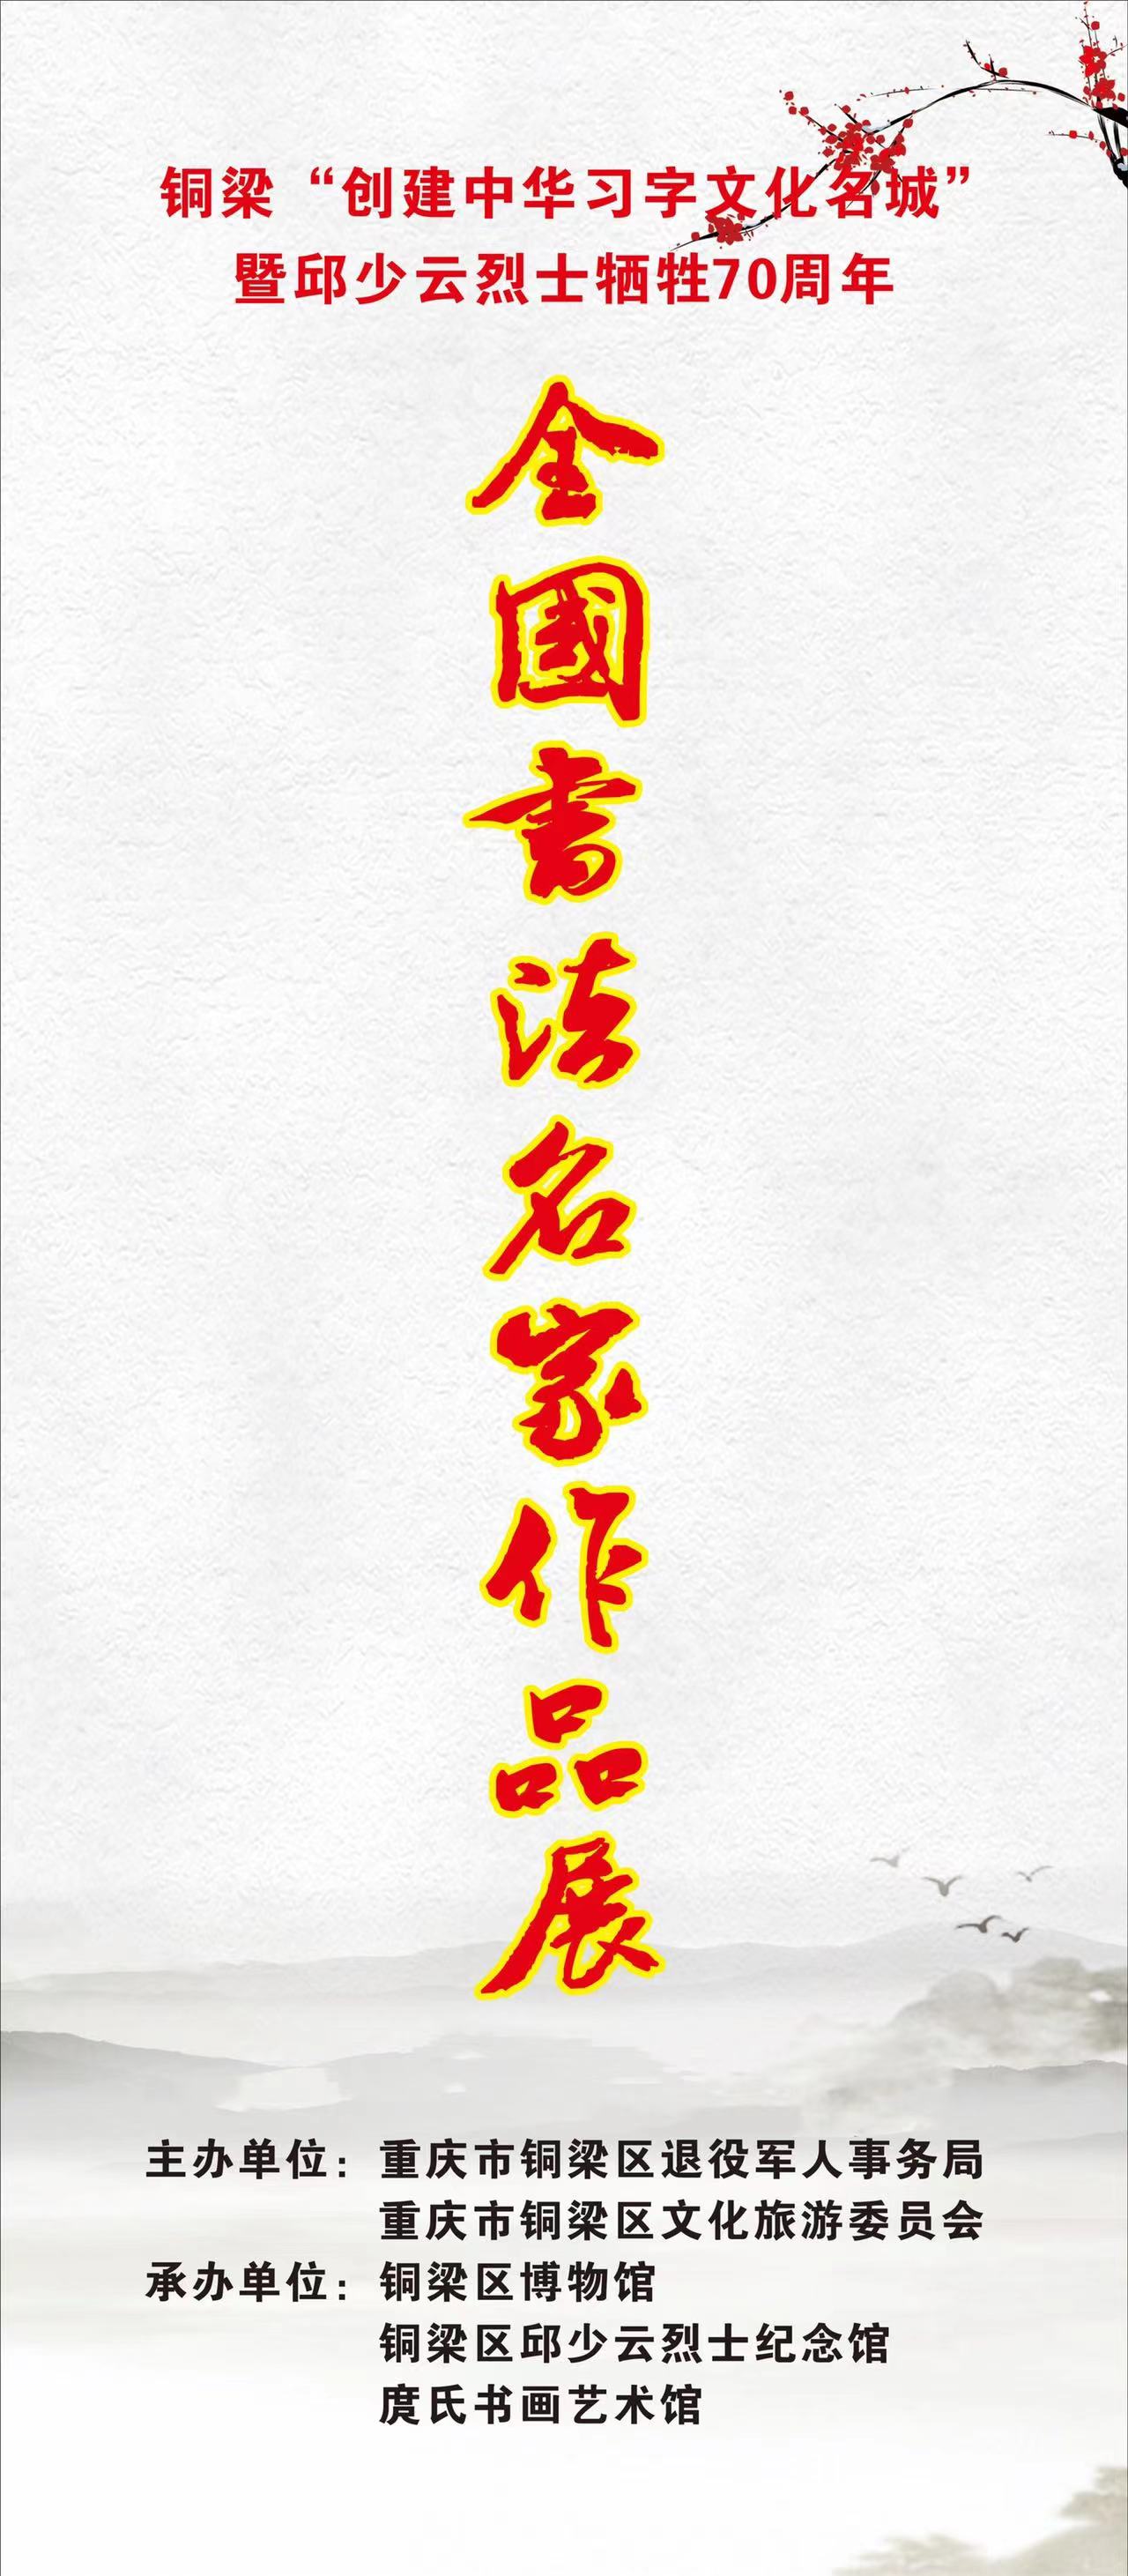 铜梁“创建中华习字文化名城”
暨邱少云烈士牺牲70周年
全國書法名家作品展
主办单位：重庆市铜梁区退役军人事务局
重庆市铜梁区文化旅游委员会
承办单位：铜梁区博物馆
铜梁区邱少云烈士纪念馆
庹氏书画艺术馆